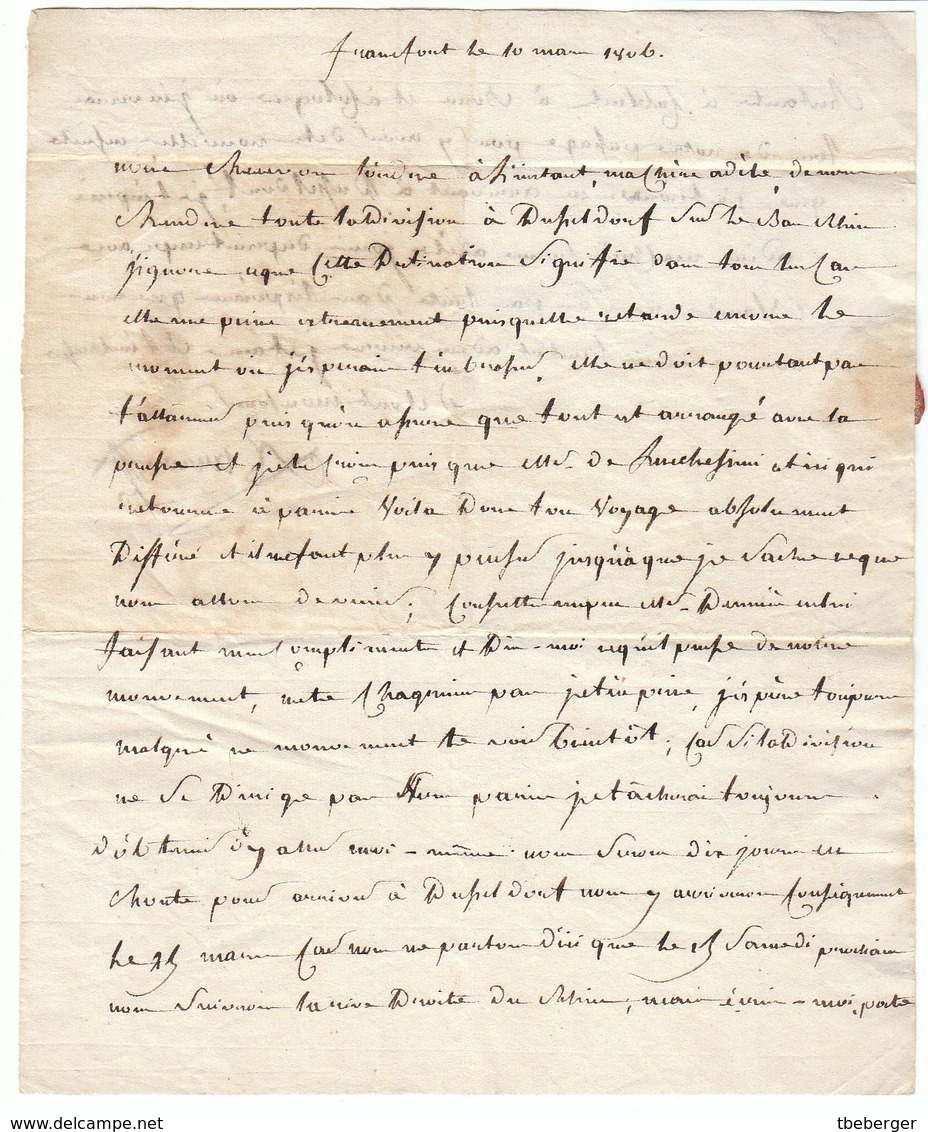 francfort le 10 mars 1806.
nous recevons l'ordre à l'instant, ma chere adèle, de nous
Rendre toute la Division à Dusseldorf sur le Bas Rhin
j'ignore ce que Cette Destination Signifie dans tous les Cas
elle me peine extremement puisqu'elle retarde encore le
moment ou j'esperais t'embrasser, elle ne doit pourtant pas
t'allarmer puisqu'on assure que tout est arrangé avec la
prusse et je le Crois puisque Mr. De Lucchesini est ici qui
retourne à paris Voila Donc ton Voyage absolument
Différé et il ne faut plus y penser jusqu'à ce que je sache ce que
nous allons devenir; Consulte Mr. en lui
faisant mes Compliments et Dis-moi ce qu'il pense de notre
mouvement, ne te Chagrine pas je t'en prie, j'espère toujours
malgré ce mouvement te voir bientôt; Car si la Division
ne se Dirige pas Vers paris je tâcherai toujours
d'obtenir d'y aller moi-même. nous serons dix jours en
Route pour arriver à Dusseldorf nous y arriverons Conséquemment
le 25 mars Car nous ne partons d'ici que le 15 Samedi prochain
nous Suivrons la rive Droite du Rhin, mais écris-moi poste
tbeberger